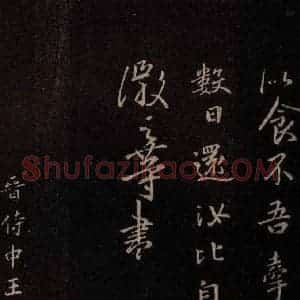 以食不吾牽
數日還汝比自
徽之等書
晉侍中王
Shufaziliao.COM